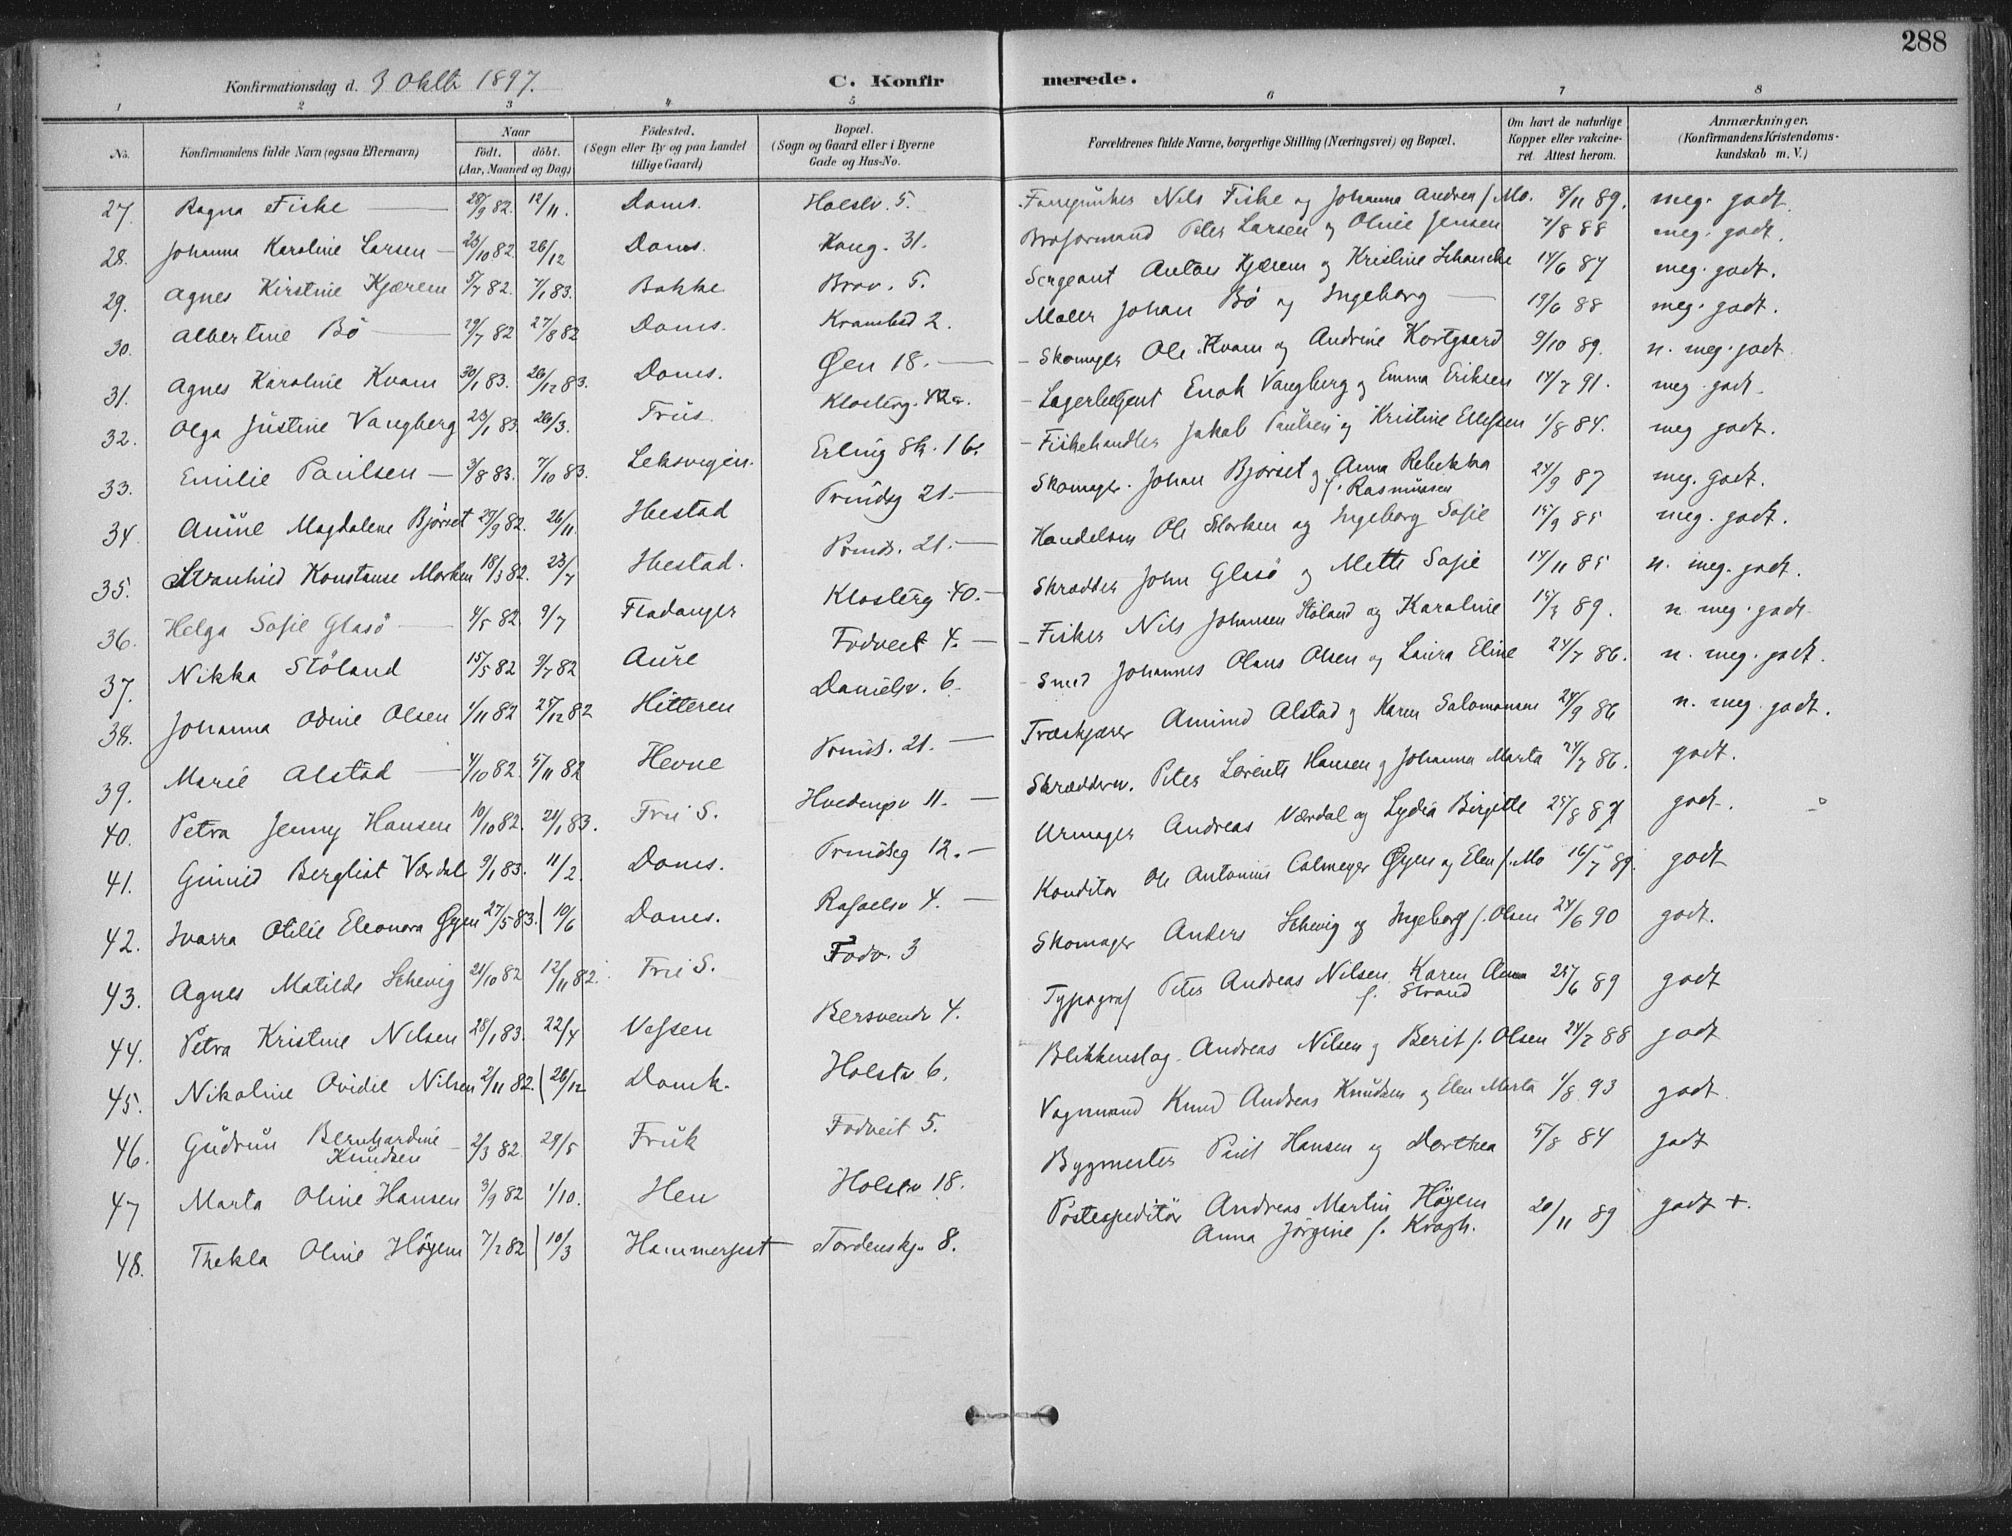 288
Konfirmationsdag d. 3 Oktbr 1897.
C. Konfirmerede.
1 2 3 4 5 6 7 8
No. Konfirmandens fulde Navn (ogsaa Efternavn) Naar födt. döbt. (Aar, Maaned og Dag) Födested. (Sogn eller By og paa Landet tillige Gaard) Bopæl. (Sogn og Gaard eller i Byerne Gade og Hus-No. Forældrenes fulde Navne, borgerlige Stilling (Næringsvei) og Bopæl. Om havt de naturlige Kopper eller vakcineret. Attest herom. Anmærkninger. (Konfirmandens Kristendomskundskab m. V.)
27. Ragna Fiske 28/9 82. 12/11. Doms. Holstv. 5. Nils Fiske og Johanna Andrea f. Mo. 8/11 89. meg. godt.
28. Johanna Karoline Larsen 23/10 82 26/12 Doms. Kong. 31. Broformand Peter Larsen og Oline Jensen 7/8 88 meg. godt.
29. Agnes Kirstine Kjærem 5/7 82. 7/1 83. Bakke Brav. 5. Sergeant Anton Kjærem og Kristine Schancke 14/6 87 meg. godt.
30. Albertine Bö 29/7 82 27/8 82 Doms. Krambod 2. Maler Johan Bö og Ingeborg 19/6 88 meg. godt.
31. Agnes Karoline Kvam 30/1 83. 26/12 83. Doms. Øen 18. Skomager Ole Kvam og Andrine Kortgaard 9/10 89. n. meg. godt
32. Olga Justine Vangberg 23/1 83 26/3. Friis. Klosterg. 42a. Lagerbetjent Enok Vangberg og Emma Eriksen 14/7 91. meg godt.
33. Emilie Paulsen 3/8 83. 7/10 83. Leksvigen. Erling Sk. 16. Fiskehandler Jakob Paulsen og Kristine Ellefsen 1/8 84. meg godt.
34. Anine Magdalene Bjørset 29/9 82. 26/11. Ihlestad Prindsg 21. Skomager. Johan Bjørset og Anna Rebekka f. Rasmussen 24/9 87 meg. godt.
35. Konstanse Morken 18/3 82. 23/7 Ihlestad. Prinds. 21. Handelsm Ole Morken og Ingeborg Sofie 15/9 85 meg. godt.
36. Helga Sofie Glasö 4/5 82. 9/7 Fladanger Klosterg 40. Skrædder John Glasö og Mette Sofie 14/11 85 n. meg. godt.
37. Nikka Stöland 15/5 82 9/7 82 Aure Fodveit 4. Fisker Nils Johansen Stöland og Karoline 15/3 89. n meg. godt
38. Johanna Odine Olsen 1/11 82 25/12 82 Hitteren Danielsv. 6. Smed Johannes Olaus Olsen og Laura Eline 24/7 86. n. meg. godt.
39. Marie Alstad 4/10 82. 5/11 82 Hevne Prinds. 21. Træskjærer Amund Alstad og Karen Salomonsen 24/9 86 n. meg. godt.
40. Petra Jenny Hansen 10/10 82. 21/1 83. Frie S. Hvedingsv 11. Skræddersv. Peter Lorents Hansen og Johanna Marta 24/7 86. godt.
41. Gunild Bergliot Værdal 9/1 83. 11/2. Doms. Prindseg 12. Urmager Andreas Værdal og Lydia Birgitte 25/8 87 godt.
42. Ivarra Otilie Eleonora Øyen 27/5 83. 10/6 Doms. Rafaelsv 4. Konditor Ole Antonius Colmeyer Øyen og Elen f. Mo 16/7 89. godt
43. Agnes Matilde Schevig 21/10 82 12/11 82. Frie S. Fodv. 3 Skomager Anders Schevig og Ingeborg f. Olsen 24/6 90 godt.
44. Petra Kristine Nilsen 28/1 83. 22/4 Vefsen Bersvendv 4. Typograf Peter Andreas Nilsen Karen Anna f. Strand 25/6 89 godt
45. Nikoline Ovidie Nilsen 2/11 82. 26/12. Domk. Holstv 6. Blikkenslag. Andreas Nilsen og Berit f. Olsen 24/7 88 godt
46. Gudrun Bernhardine Knudsen 2/3 82. 29/5 Friik Fodveit 5. Vognmand Knud Andreas Knudsen og Elen Marta 1/8 93 godt
47 Marta Oline Hansen 3/9 82 1/10. Hen Holstv 18. Bygmester Hansen og Dorthea 5/8 84 godt
48. Thekla Oline Höyem 7/2 82 10/3 Hammerfest Tordenskj. 8. Postexpeditör Andreas Martin Höyem Anna Jörgine f. Krogh. 20/11 89 godt +.